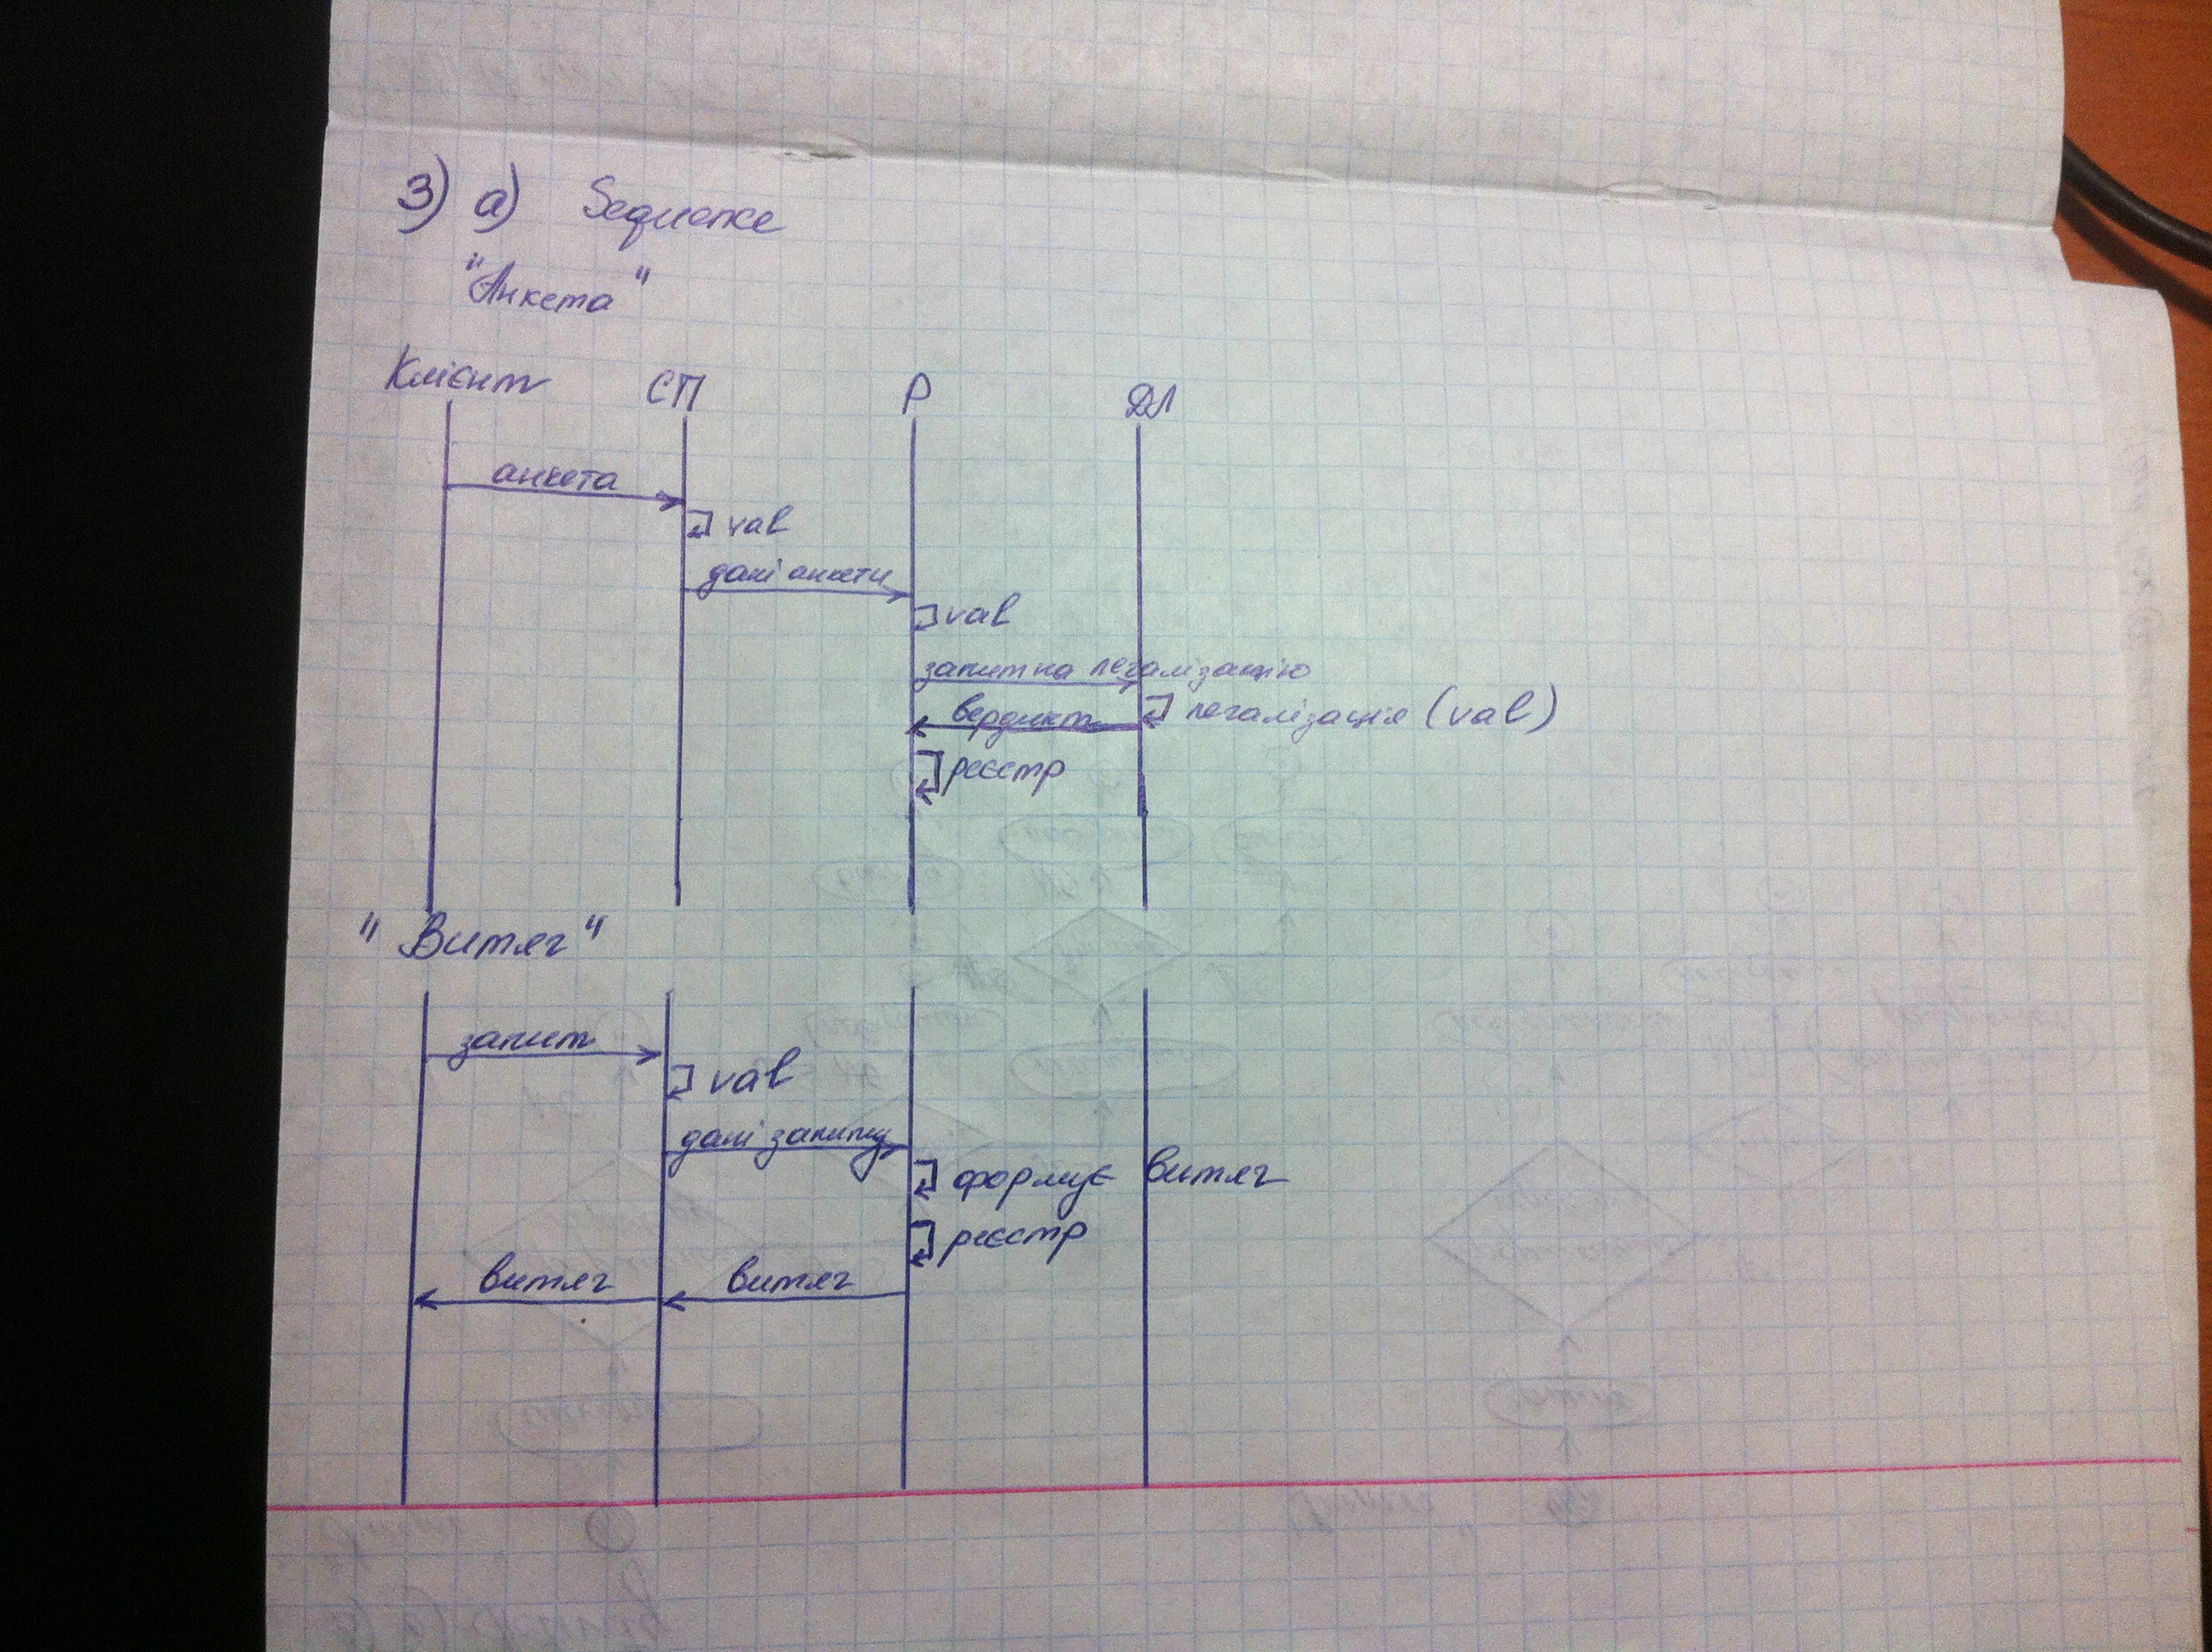 3) а) Sequence
"Анкета"
Клієнт СП Р ДЛ
анкета
val
дані анкети
val
запит на легалізацію
вердикт легалізація (val)
реєстр
"Витяг"
запит
val
дані запиту
формує витяг
реєстр
витяг витяг